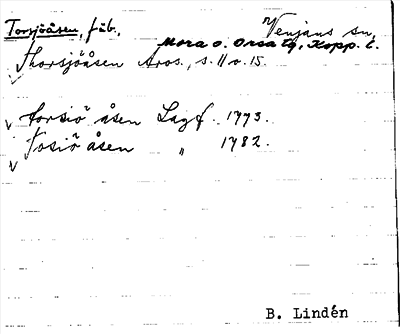 Torsjöåsen, fäb., Venjans sn,
Mora o. Orsa tg, Kopp. l.
Thorsjöåsen Aros., s. 11 o. 15.
torsiö åsen Lagf. 1773.
Tosiö åsen " 1782.
B. Lindén